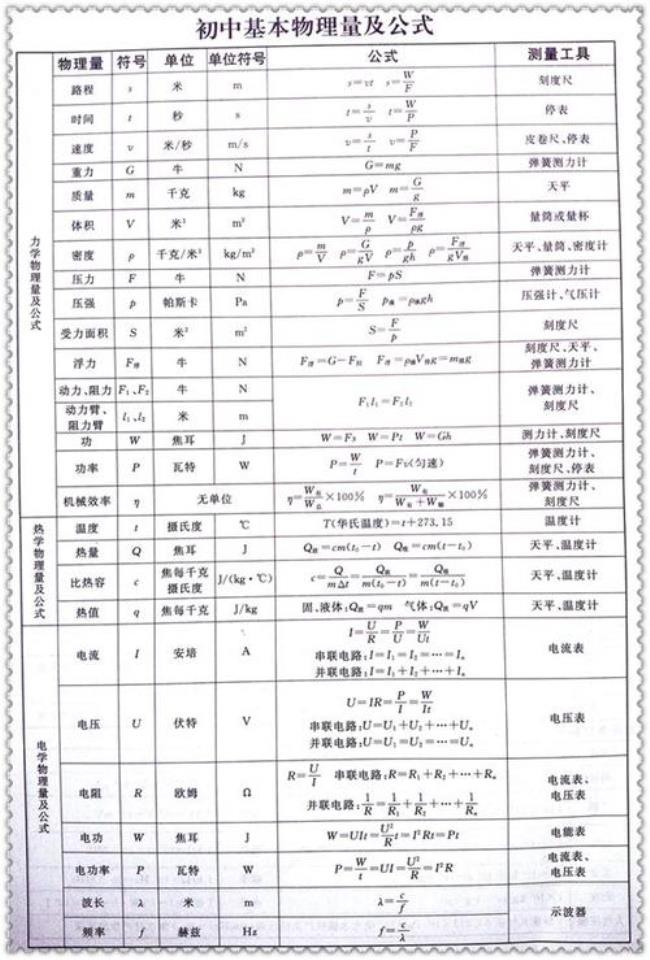 初中基本物理量及公式
物理量 符号 单位 单位符号 公式 测量工具
力学物理量及公式
路程 s 米 m s=vt s=W/F 刻度尺
时间 t 秒 s t=s/v t=W/P 停表
速度 v 米/秒 m/s v=s/t v=P/F 皮卷尺、停表
重力 G 牛 N G=mg 弹簧测力计
质量 m 千克 kg m=ρV m=G/g 天平
体积 V 米³ m³ V=m/ρ V=F浮/ρg 量筒或量杯
密度 ρ 千克/米³ kg/m³ ρ=m/V ρ=G/gV ρ=p/gh ρ=F浮/gV排 天平、量筒、密度计
压力 F 牛 N F=pS 弹簧测力计
压强 p 帕斯卡 Pa p=F/S p液=ρ液gh 压强计、气压计
受力面积 S 米² m² S=F/p 刻度尺
浮力 F浮 牛 N F浮=G-F拉 F浮=ρ液V排g=m排g 刻度尺、天平、
弹簧测力计
动力、阻力 F₁、F₂ 牛 N F₁l₁=F₂l₂ 弹簧测力计、
刻度尺
动力臂、
阻力臂 l₁、l₂ 米 m
功 W 焦耳 J W=Fs W=Pt W=Gh 测力计、刻度尺
功率 P 瓦特 W P=W/t P=Fv(匀速) 弹簧测力计、
刻度尺、停表
机械效率 η 无单位 η=W有/W总×100% η=W有/(W有+W额)×100% 弹簧测力计、
刻度尺
热学物理量及公式
温度 t 摄氏度 ℃ T(华氏温度)=t+273.15 温度计
热量 Q 焦耳 J Q放=cm(t₀-t) Q吸=cm(t-t₀) 天平、温度计
比热容 c 焦每千克
摄氏度 J/(kg·℃) c=Q/mΔt=Q放/m(t₀-t)=Q吸/m(t-t₀) 天平、温度计
热值 q 焦每千克 J/kg 固、液体:Q放=qm 气体:Q放=qV 天平、温度计
电学物理量及公式
电流 I 安培 A I=U/R=P/U=W/Ut 电流表
串联电路:I=I₁=I₂=……=Iₙ
并联电路:I=I₁+I₂+…+Iₙ
电压 U 伏特 V U=IR=P/I=W/It 电压表
串联电路:U=U₁+U₂+…+Uₙ
并联电路:U=U₁=U₂=……=Uₙ
电阻 R 欧姆 Ω R=U/I 串联电路:R=R₁+R₂+…+Rₙ 电流表、
电压表
并联电路:1/R=1/R₁+1/R₂+…+1/Rₙ
电功 W 焦耳 J W=UIt=U²/R t=I²Rt=Pt 电能表
电功率 P 瓦特 W P=W/t=UI=U²/R=I²R 电流表、
电压表
波长 λ 米 m λ=c/f 示波器
频率 f 赫兹 Hz f=c/λ